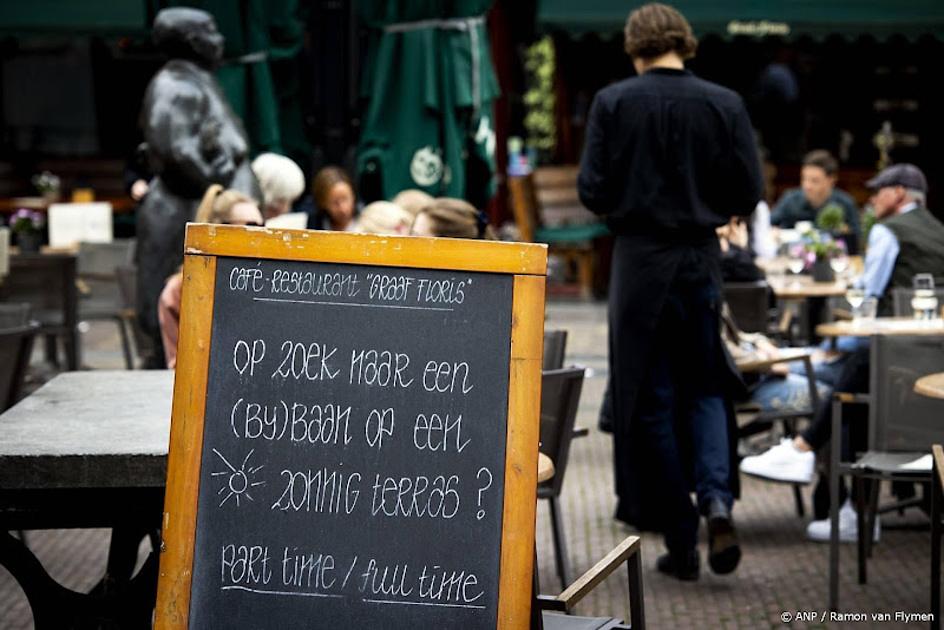 café-Restaurant "GRAAF FLORIS"
OP ZOEK NAAR EEN
(BY)BAAN OP EEN
ZONNIG TERRAS?
PART TIME / FULL TIME
© ANP / Ramon van Flymen